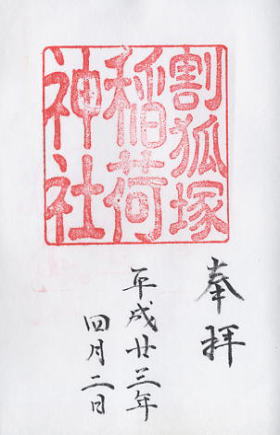 割狐塚
稲荷
神社
奉拝
平成廿三年
四月二日